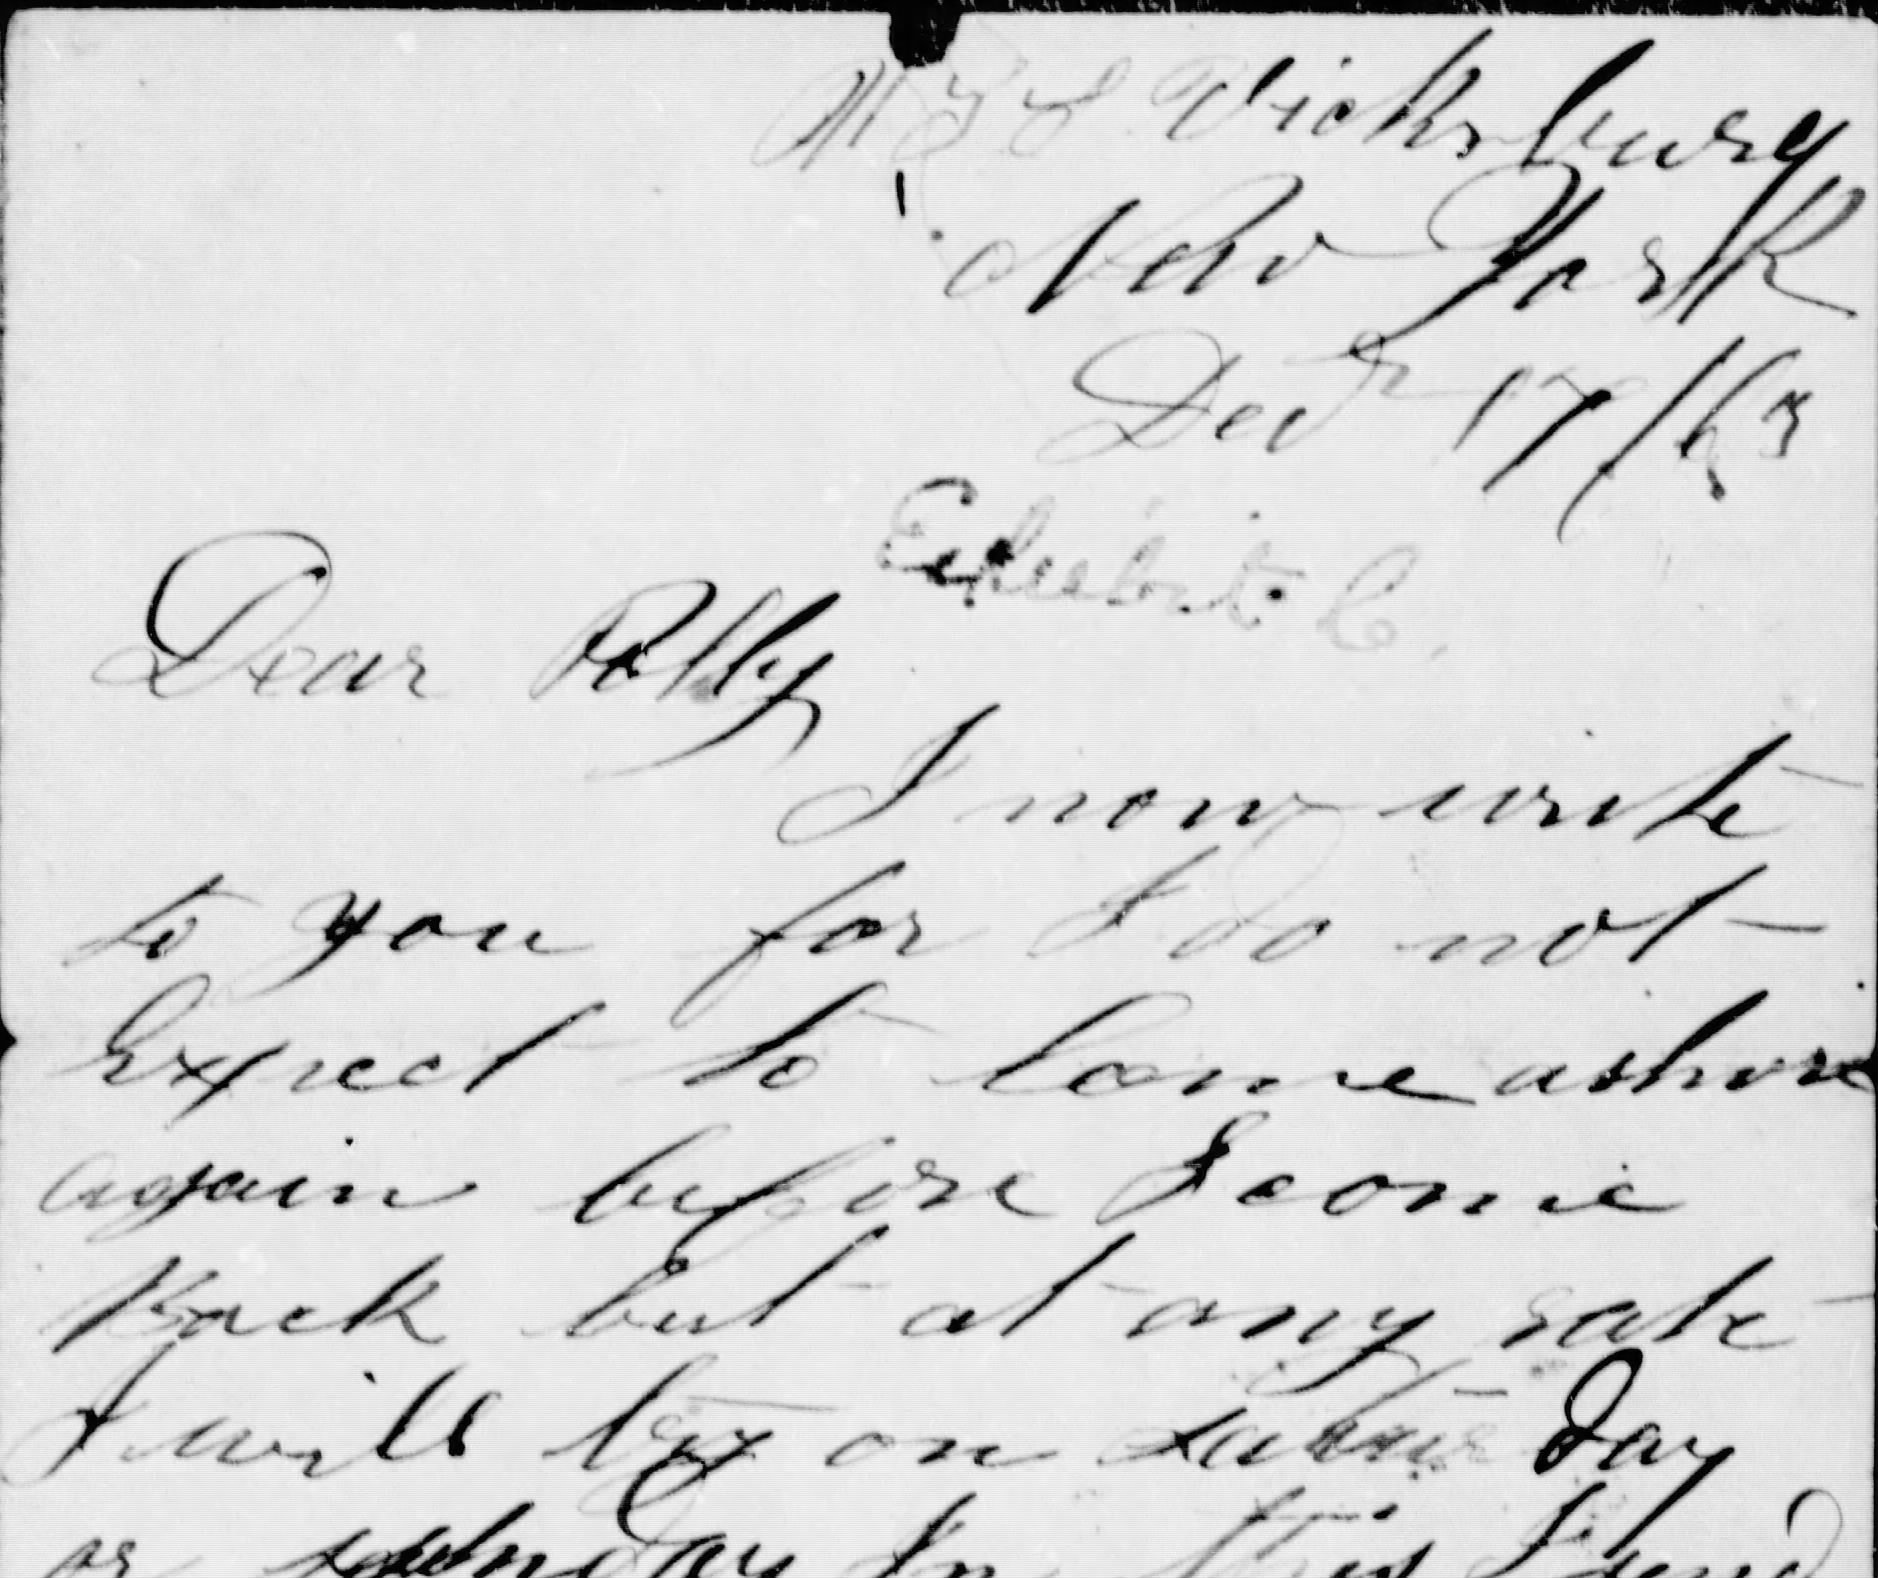 U S S Vicksburg
New York
Decr 17/63
Exhibit C.
Dear Polly
I now write
to you for I do not
Expect to Come ashore
again before I come
Back but at any rate
I will try on Satur Day
or sunday In this I send